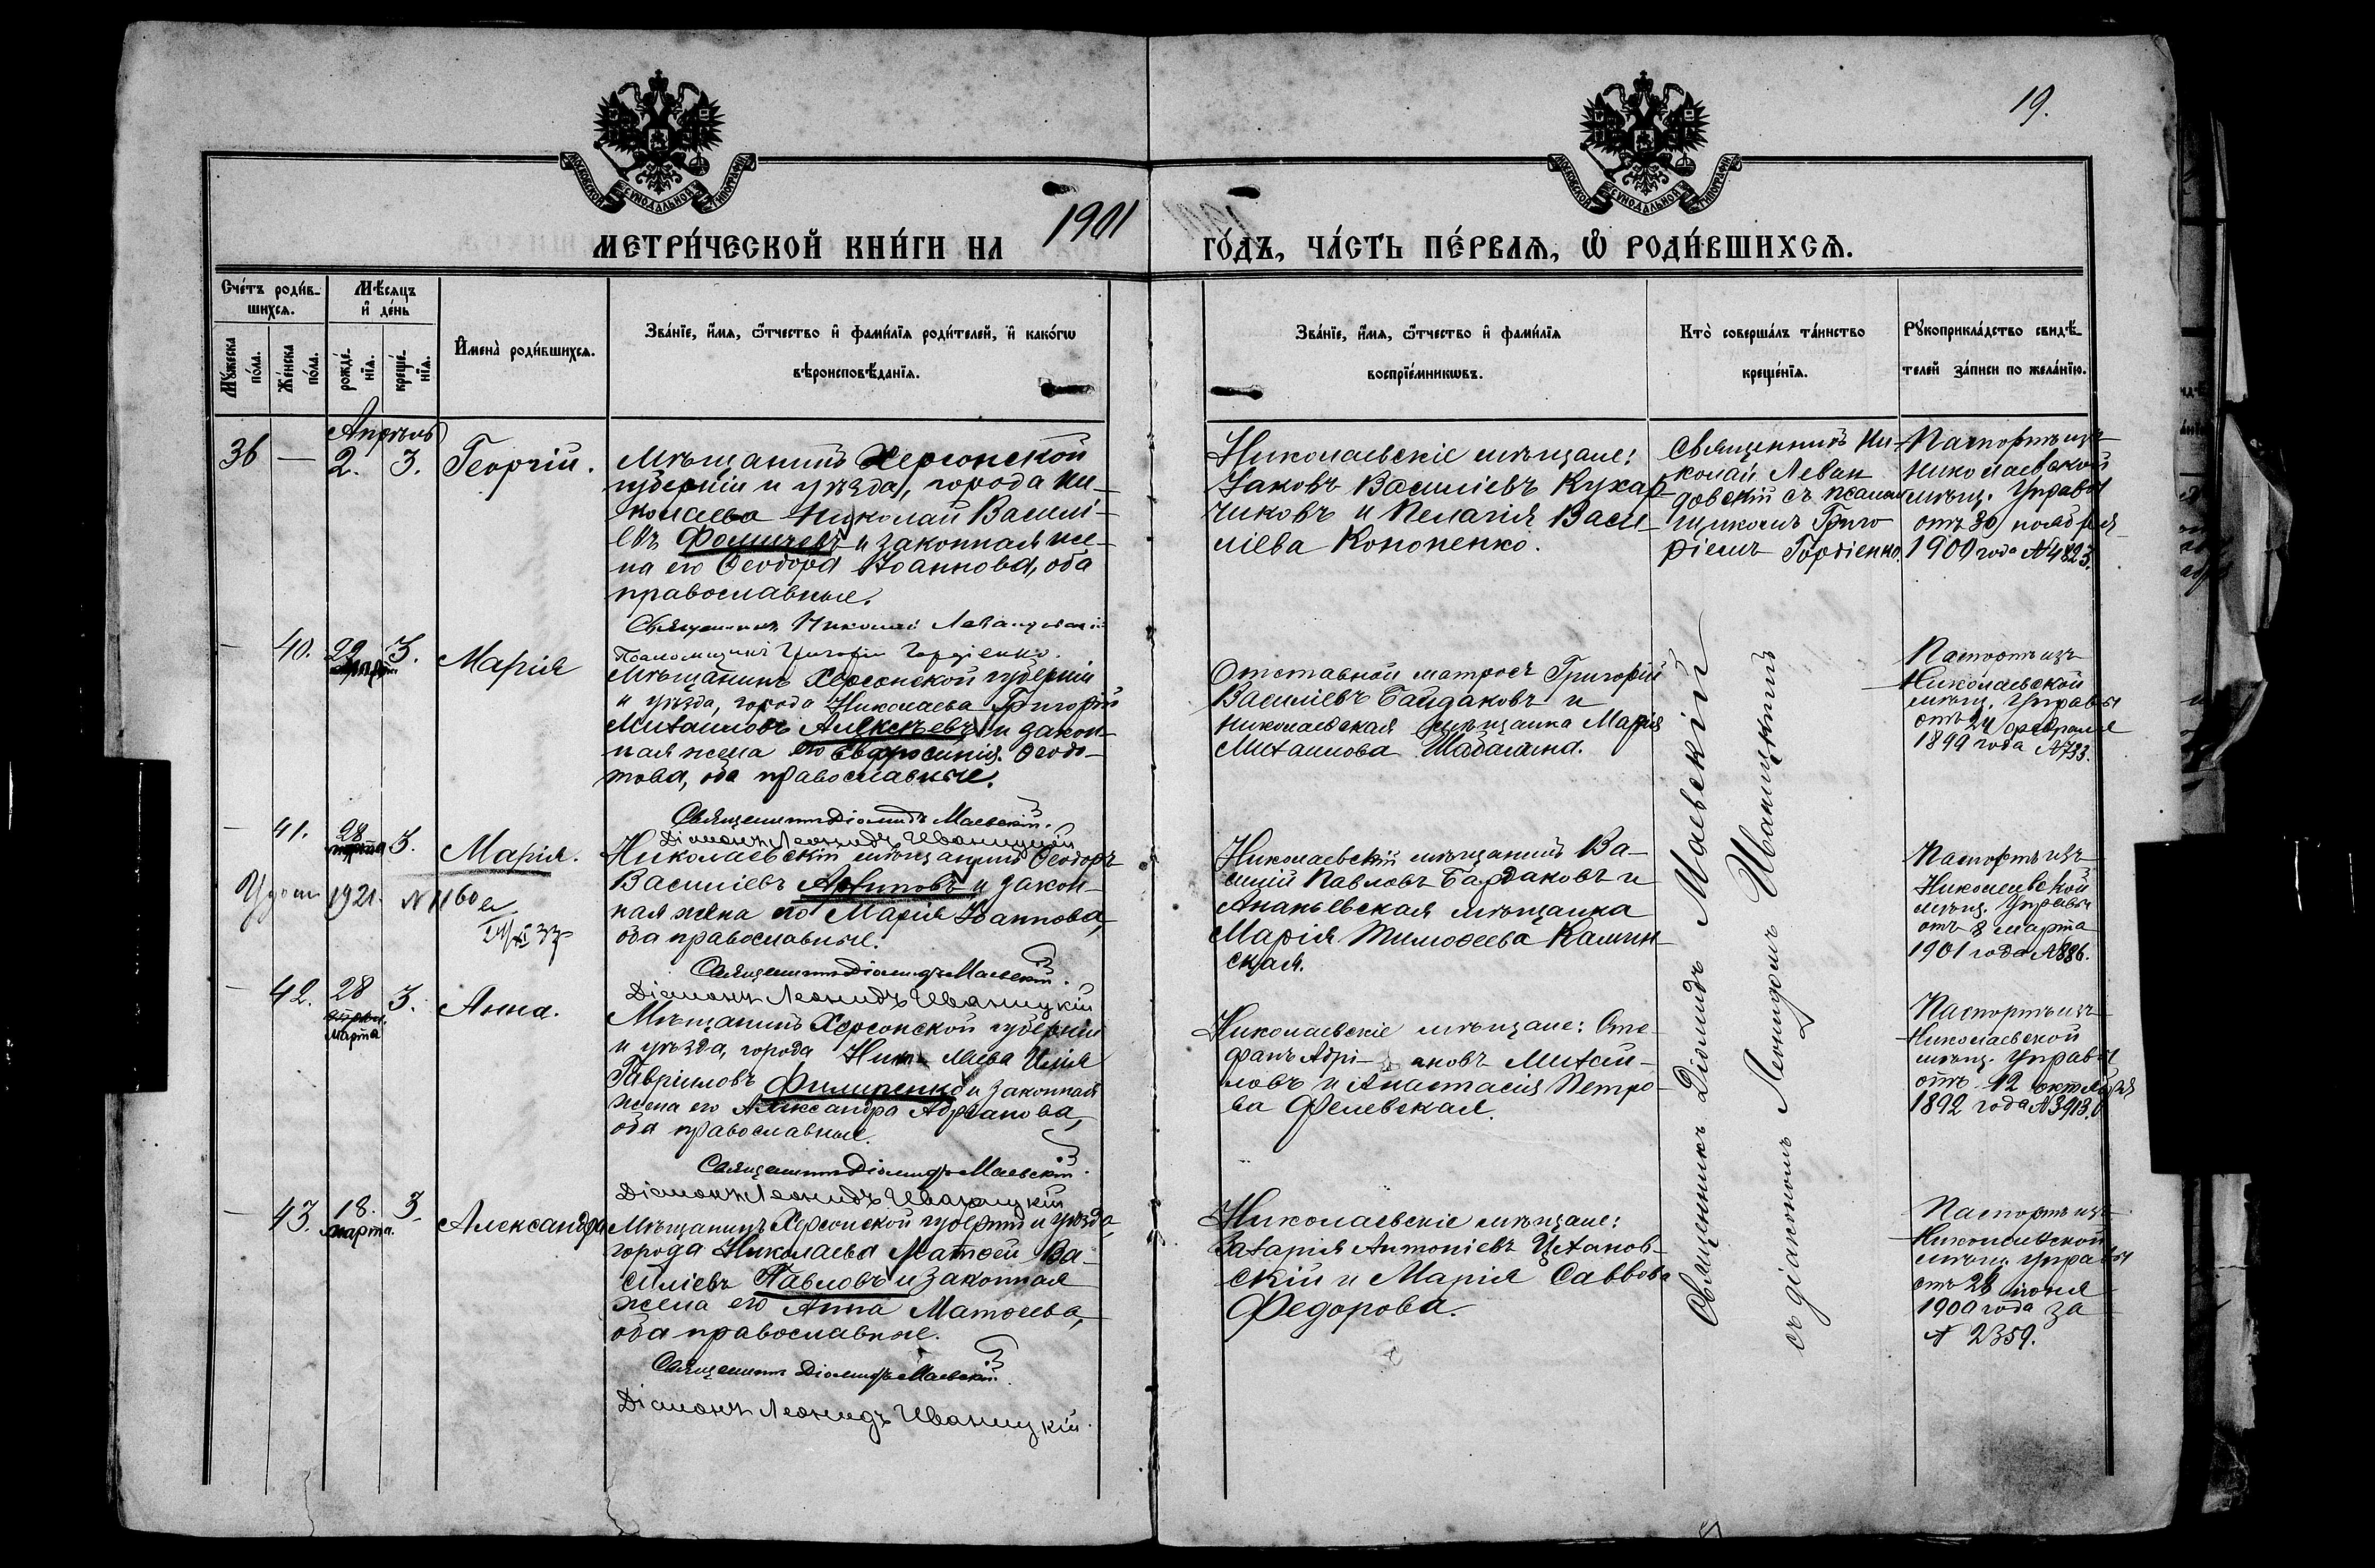 19.
МОСКОВСКОЙ СѴНОДАЛЬНОЙ ТИПОГРАФІИ
МОСКОВСКОЙ СѴНОДАЛЬНОЙ ТИПОГРАФІИ
МЕТРИ́ЧЕСКОЙ КНИ́ГИ НА 1901 ГО́ДЪ, ЧА́СТЬ ПЕ́РВАЯ, Ѡ҆ РОДИ́ВШИХСЯ.
Сче́тъ роди́в-
шихся.
Му́жеска
по́ла.
Же́нска
по́ла.
Мѣ́сяцъ
и҆ де́нь
рожде́-
нїя.
креще́-
нїя.
И҆мена̀ роди́вшихся.
Зва́нїе, и҆́мя, ѻ҆́тчество и҆ фами́лїя роди́телей, и҆ како́гѡ
вѣроисповѣ́данїя.
Зва́нїе, и҆́мя, ѻ҆́тчество и҆ фами́лїя
воспрїе́мникѡвъ.
Кто̀ соверша́лъ та́инство
креще́нїя.
Рꙋкоприкла́дство свидѣ́-
телей за́писи по жела́нїю.
Апрѣль
36 — 2. 3. Георгій.
Мѣщанинъ Херсонской
губерніи и уѣзда, города Ни-
колаева Николай Василі-
евъ Фомичевъ и законная же-
на его Ѳеодора Іоаннова, оба
православные.
Священникъ Николай Левандовскій
Псаломщикъ Григорій Гордіенко.
Николаевскіе мѣщане:
Іаковъ Василіевъ Кухар-
чиковъ и Пелагія Васи-
ліева Кононенко.
Священникъ Ни-
колай Леван
довскій съ псалом
щикомъ Григо
ріемъ Гордіенко.
Паспортъ изъ
Николаевской
мѣщ. Управы
отъ 30 ноября
1900 года № 4823.
— 40. 22 марта 3. Марія
Мѣщанинъ Херсонской губерніи
и уѣзда, города Николаева Григорій
Михаиловъ Алексѣевъ и закон-
ная жена его Евфросинія Ѳеодо-
това, оба православные.
Священникъ Діомидъ Маевскій.
Діаконъ Леонидъ Иваницкій
Отставной матросъ Григорій
Василіевъ Байдаковъ и
николаевская мѣщанка Марія
Михаилова Шабалина.
Паспортъ изъ
Николаевской
мѣщ. Управы
отъ 24 февраля
1899 года № 733.
— 41. 28 марта 3. Марія.
1921 № 1160
Николаевскій мѣщанинъ Ѳеодоръ
Василіевъ Архиповъ и закон-
ная жена его Марія Іоаннова,
оба православные.
Священникъ Діомидъ Маевскій.
Діаконъ Леонидъ Иваницкій
Николаевскій мѣщанинъ Ва-
силій Павловъ Бардаковъ и
Ананьевская мѣщанка
Марія Тимоѳеева Камин-
ская.
Паспортъ изъ
Николаевской
мѣщ. Управы
отъ 8 марта
1901 года № 886.
— 42. 28 марта 3. Анна.
Мѣщанинъ Херсонской губерніи
и уѣзда, города Николаева Илія
Гавріиловъ Филиренко и законная
жена его Александра Адріанова,
оба православные.
Священникъ Діомидъ Маевскій.
Діаконъ Леонидъ Иваницкій
Николаевскіе мѣщане: Сте-
фанъ Адрі-ановъ Михай-
ловъ и Анастасія Петро-
ва Фелевская.
Паспортъ изъ
Николаевской
мѣщ. Управы
отъ 12 октября
1892 года № 3913.
— 43. 18. марта. 3. Александра
Мѣщанинъ Херсонской губерніи и уѣзда,
города Николаева Матѳей Ва-
силіевъ Павловъ и законная
жена его Анна Матѳеева,
оба православные.
Священникъ Діомидъ Маевскій.
Діаконъ Леонидъ Иваницкій.
Николаевскіе мѣщане:
Захарія Антоніевъ Цехановскій
и Марія Саввова
Федорова.
Паспортъ изъ
Николаевской
мѣщ. Управы
отъ 28 іюня
1900 года за
№ 2359.
Священникъ Діомидъ Маевскій
съ діакономъ Леонидомъ Иваницкимъ